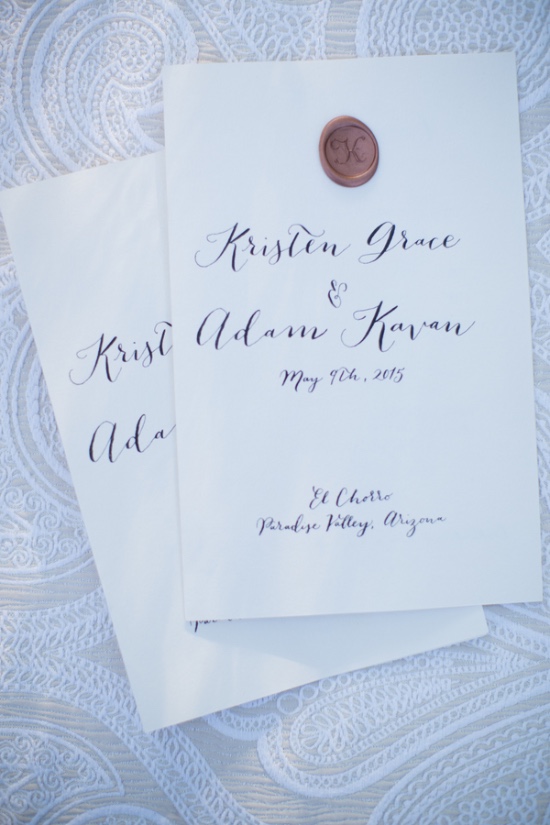 K
Kristen Grace
&
Adam Kavan
May 9th, 2015
El Chorro
Paradise Valley, Arizona
Krist
Ada